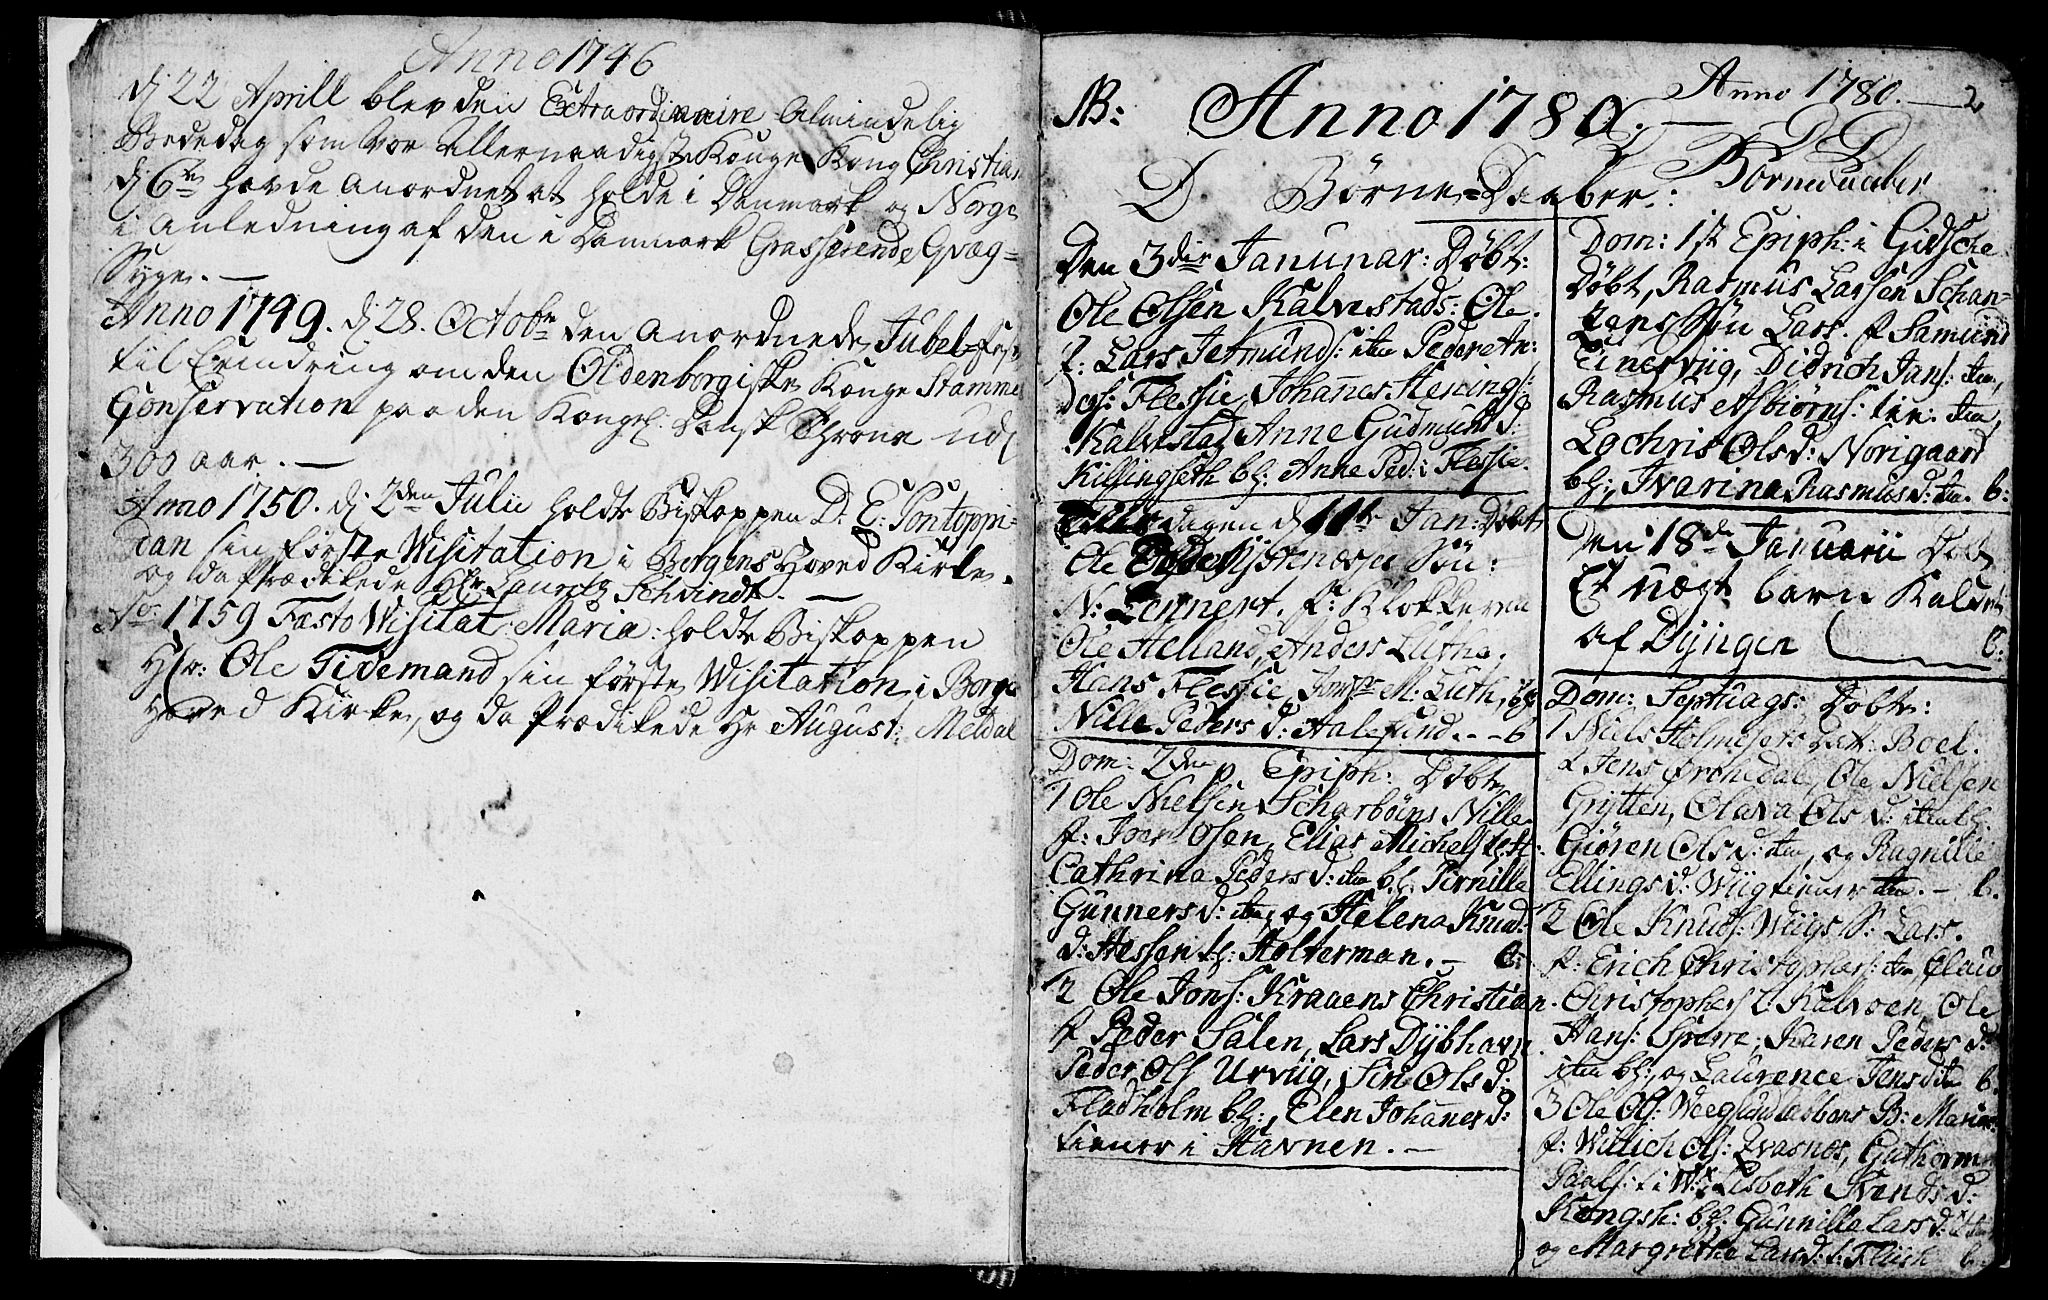 Anno 1746
dj 22 Aprill blev den Extraordinaire Almindelig
Bededag som vor Allernaadigste Konge Kong Christian
dj 6te havde anordnet at holde i Danmark og Norge
i anledning af den i Danmark Grasserende Qvæg=
Syge. —
Anno 1749. dj 28. Octobr den anordnede Jubel=fest
til Erindring om den Oldenborgiske Konge Stammes
Conservation paa den Kongel: Dansk Throne udj
300 aar. —
Anno 1750. dj 2den Julii holdt Biskoppen D: E: Pontoppi=
dan sin første Wisitation i Bergens Hoved Kirke.
og da Prædikede Hr Lauretz Schvindt. —
Ao 1759 Fæsto Wisitat: Maria: holdt Biskoppen
Hr: Ole Tidemand sin første Wisitation i Berge
Hoved Kirke, og da Prædikede Hr August: Meldal
NB: Anno 1780. —
D Børne=Daaber:
Den 3die Janunar: Døbt:
Ole Olsen Kalvestads: Ole.
f: Lars Jetmunds: iten Peder An:
ders: Flessie, Johanes Hening s:
Kalvestad Anne Gudmunds d:
Killingseth bh: Anne Ped: i Flessie.
dagen d 11te Jan: Døbt
Ole Søn:
N: Lennert. f: Klokkeren
Ole Helland, Anders Luthe,
Hans Flessie, Jomfr M. Luth, og
Nille Peders d: Aalesund. - - b
Dom: 2den p. Epiph: Døbt
1 Ole Nielsen Scharbøns Nille
f: Iver Olsen, Elias Michels
Cathrina Peders d: iten bh: Pernille
Gunners d: iten, og Helena Knud
d: Hessen t: Holterman. - b:
2 Ole Jons: Kraaens Christian.
f Peder Salen, Lars Dybhavn
Peder Ols Urviig, Siri Ols d:
Fladholm bh:, Elen Johanes d:
tiener i Havnen. —
Anno 1780. — 2
Børnedaaber
Dom: 1st Epiph: i Gidsche
Døbt, Rasmus Larsen Schan=
zens Søn Lars. f Samund
Einerviig, Didrich Jans: iten,
Rasmus Asbiørns: tien: iten,
Lochris Ols d: Norigaard
bh:, Ivarina Rasmus d: iten. b:
Den 18de Januarii Døbt
Et uægt barn Kaldet
af Dyngen b:
Dom: Septuags: Døbt:
1 Niels Holmesers Dat: Boel.
f Jens Ørchedal, Ole Nielsen
Grytten, Olava Ols d: iten bh:
Giøren Ols d: iten, og Ragnille
Ellings d: Wiig tiener iten. - b.
2 Ole Knuds: Wiigs S: Lars.
f: Erich Christophers: iten, Claus
Christophers: Kalvøen, Ole
Hans: Sperre, Karen Peders d:
iten bh:, og Laurence Jens d: iten b.
3 Ole Ols: B: Maria.
f: Willich Ols: Qvasnes, Guthorm
Paals: i W: Lisbeth Svends d:
Kongsh: bh: Gunnilla Lars d: iten
og Margrethe Lars d: i Fliish b: